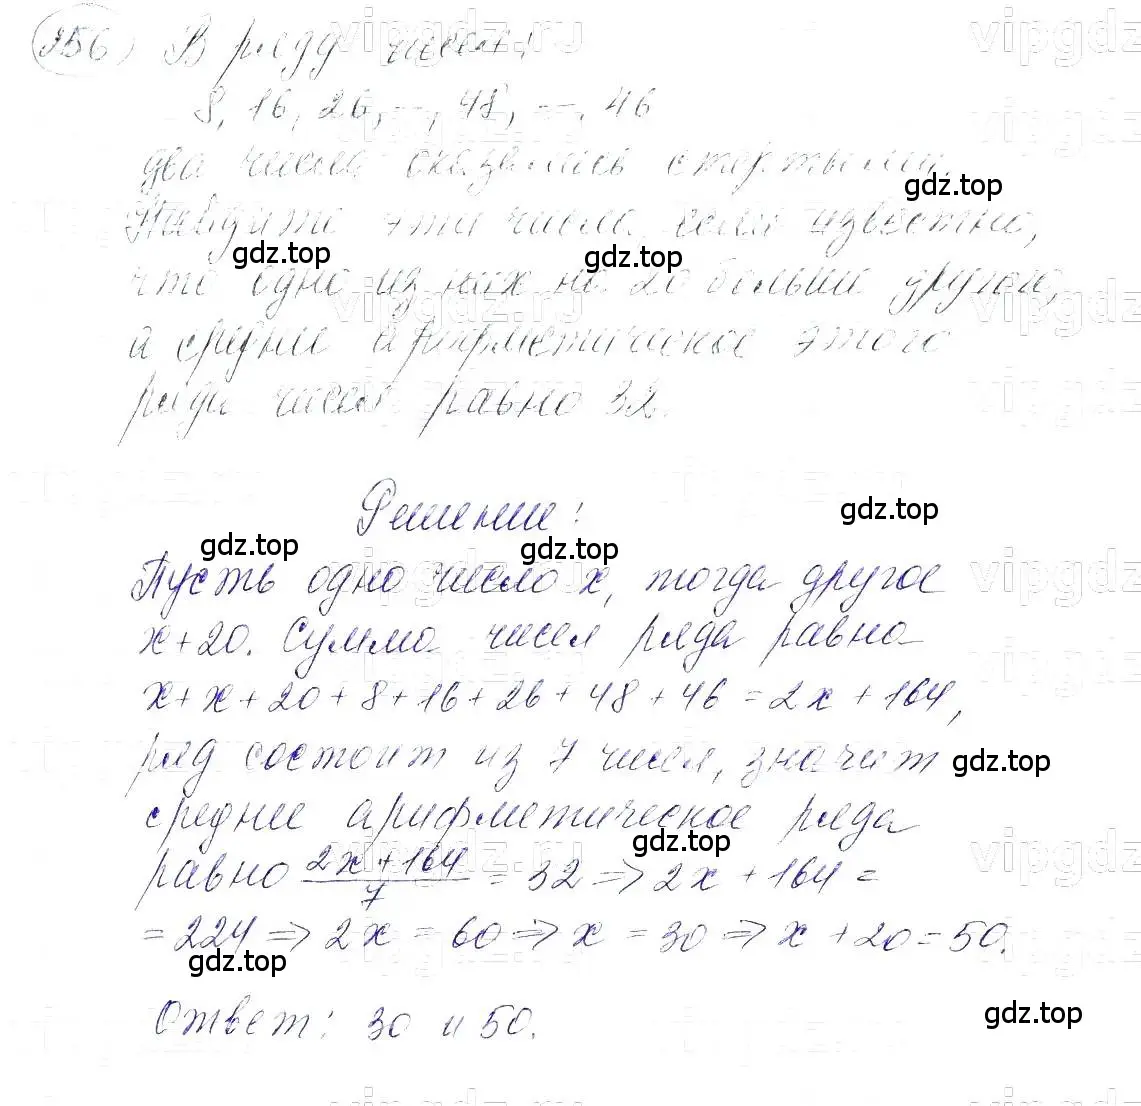 256) В ряду чисел:
8, 16, 26, —, 48, —, 46
два числа оказались стёртыми.
Найдите эти числа, если известно,
что одно из них на 20 больше другого,
а среднее арифметическое этого
ряда чисел равно 32.
Решение:
Пусть одно число x, тогда другое
x+20. Сумма чисел ряда равна
x+x+20+8+16+26+48+46=2x+164,
ряд состоит из 7 чисел, значит
среднее арифметическое ряда
равно (2x+164)/7 = 32 => 2x+164=
=224 => 2x = 60 => x = 30 => x+20=50.
Ответ: 30 и 50.
gdz.top
gdz.top
gdz.top
gdz.top
gdz.top
gdz.top
gdz.top
gdz.top
gdz.top
gdz.top
vipgdz.ru